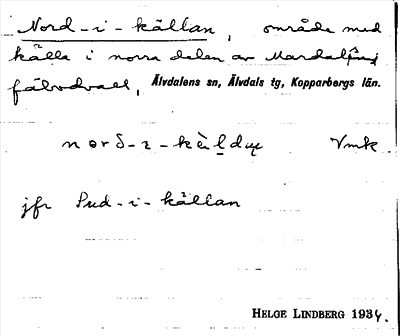 Nord-i-källan, område med
källa i norra delen av
fäbodvall, Älvdalens sn, Älvdals tg, Kopparbergs län.
Vmk
jfr Sud-i-källan
HELGE LINDBERG 1934.